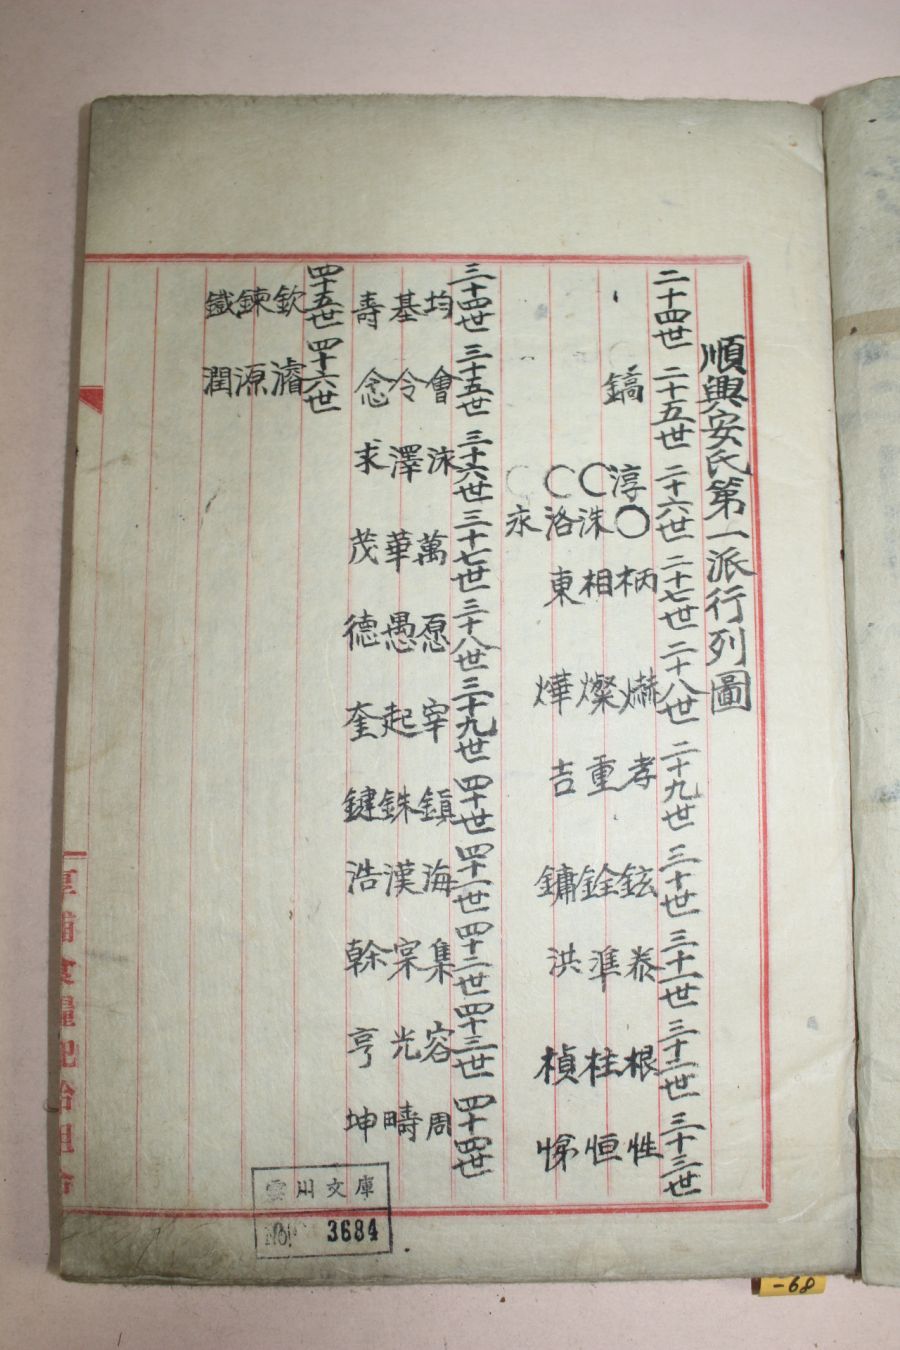 順興安氏第一派行列圖
二十四世 二十五世 二十六世 二十七世 二十八世 二十九世 三十世 三十一世 三十二世 三十三世
鎬 淳〇 柄 爀 孝 鉉 泰 根 性
〇洙 相 燦 重 銓 準 柱 恒
〇洛 東 燁 吉 鏞 洪 楨 悌
〇永
三十四世 三十五世 三十六世 三十七世 三十八世 三十九世 四十世 四十一世 四十二世 四十三世 四十四世
均 會 泳 萬 愿 宰 鎭 海 集 容 周
基 令 澤 華 愚 起 銖 漢 寀 光 疇
壽 念 求 茂 德 奎 鍵 浩 榦 亨 坤
四十五世 四十六世
欽 濬
鍊 源
鐵 潤
雲川文庫
No. 3684
-68